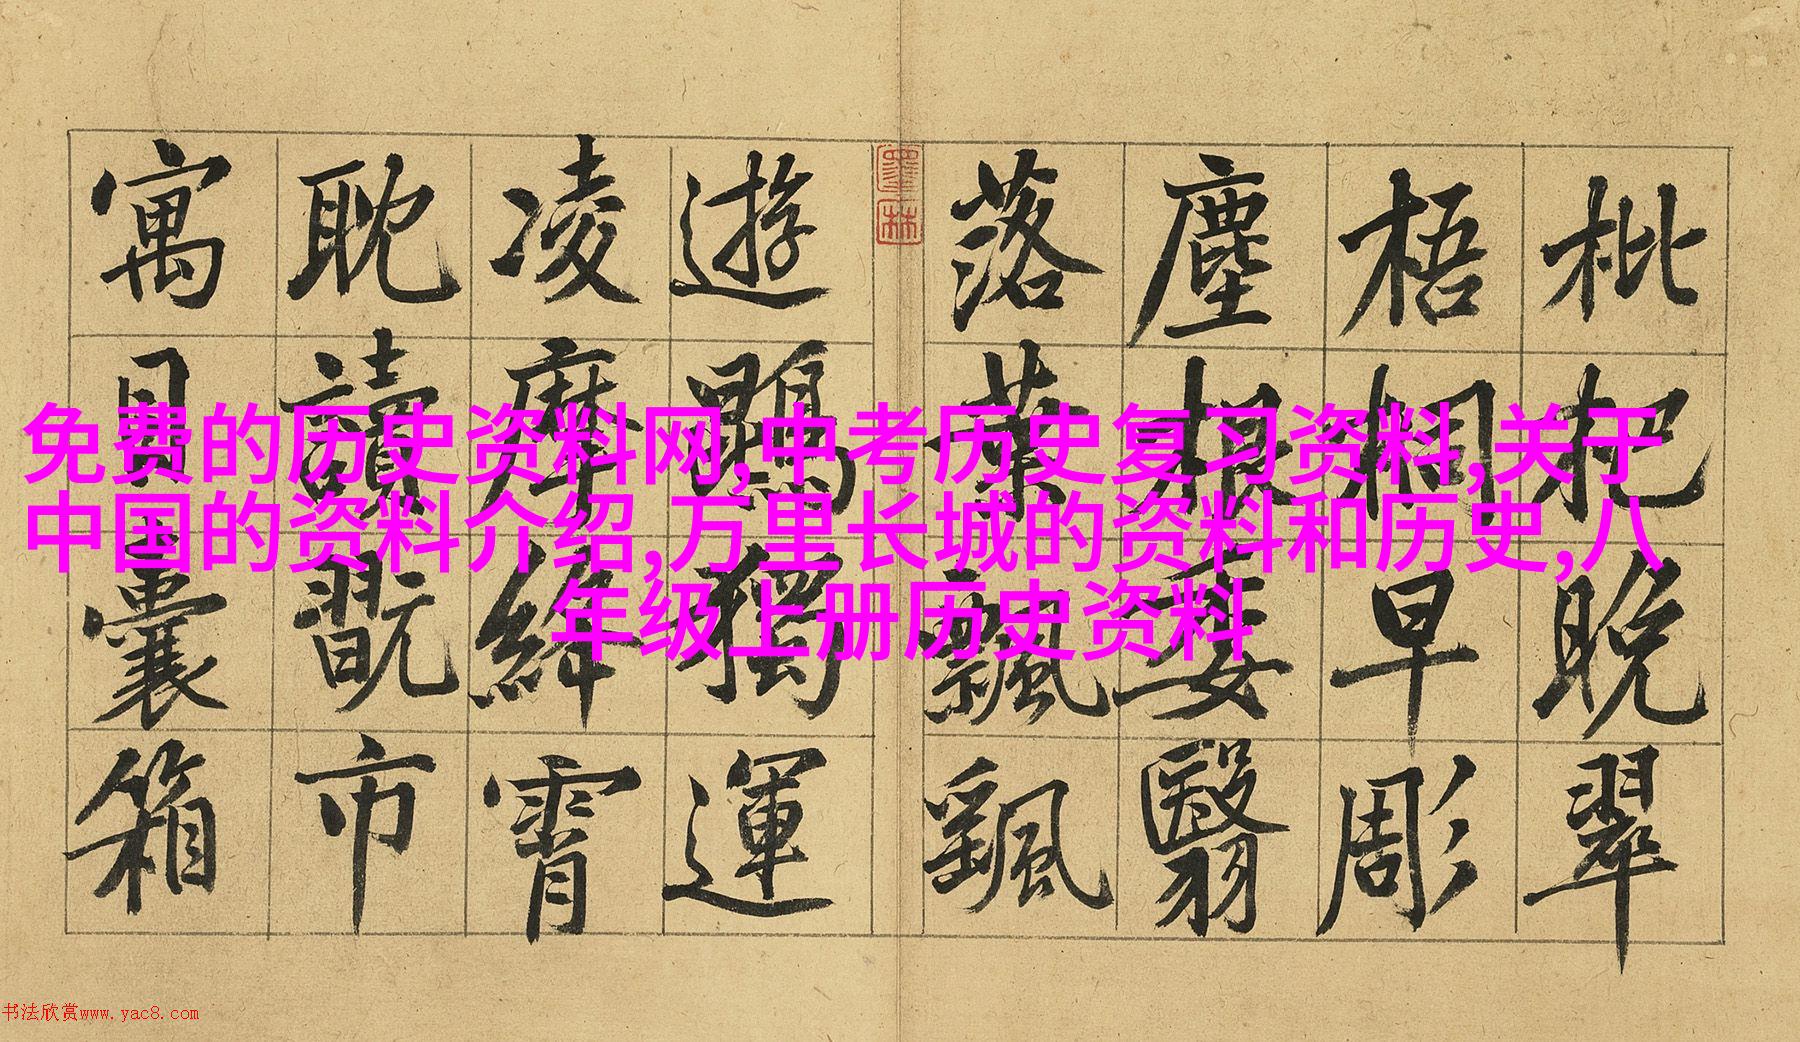 枇杷晚翠
梧桐早彫
塵根委翳
落葉飄颻
遊鵾獨運
凌摩絳霄
耽讀翫市
寓目囊箱
墨林
免费的历史资料网,中考历史复习资料,关于
中国的资料介绍,万里长城的资料和历史,八
年级上册历史资料
书法欣赏www.yac8.com